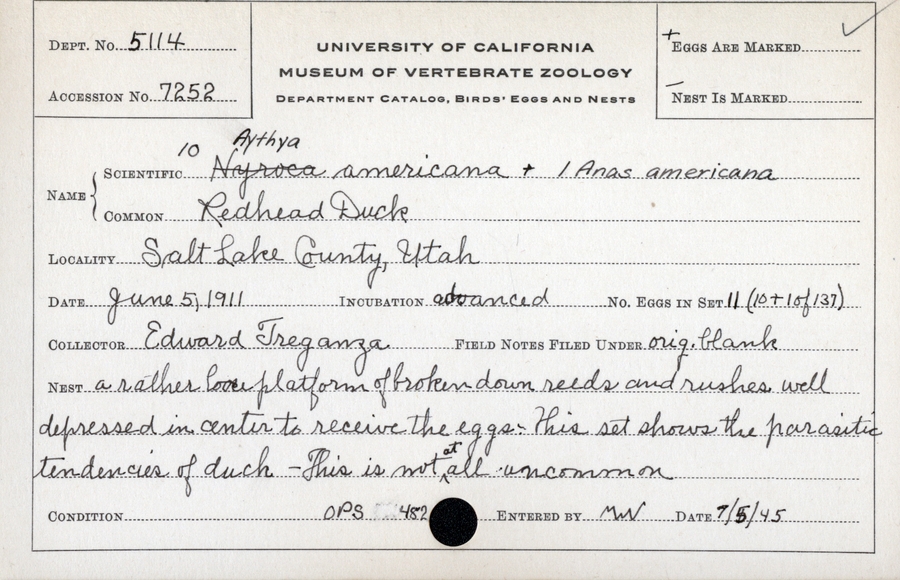 Dept. No. 5114
Accession No. 7252
UNIVERSITY OF CALIFORNIA
MUSEUM OF VERTEBRATE ZOOLOGY
Department Catalog, Birds' Eggs and Nests
+ Eggs Are Marked
— Nest Is Marked
10 Aythya
Name
Scientific Nyroca americana + 1 Anas americana
Common Redhead Duck
Locality Salt Lake County, Utah
Date June 5, 1911 Incubation advanced No. Eggs in Set 11 (10+1 of 137)
Collector Edward Treganza Field Notes Filed Under orig. blank
Nest a rather loose platform of broken down reeds and rushes well
depressed in center to receive the eggs - This set shows the parasitic
tendencies of duck - This is not at all uncommon
Condition OPS 482 Entered by Date 7/5/45